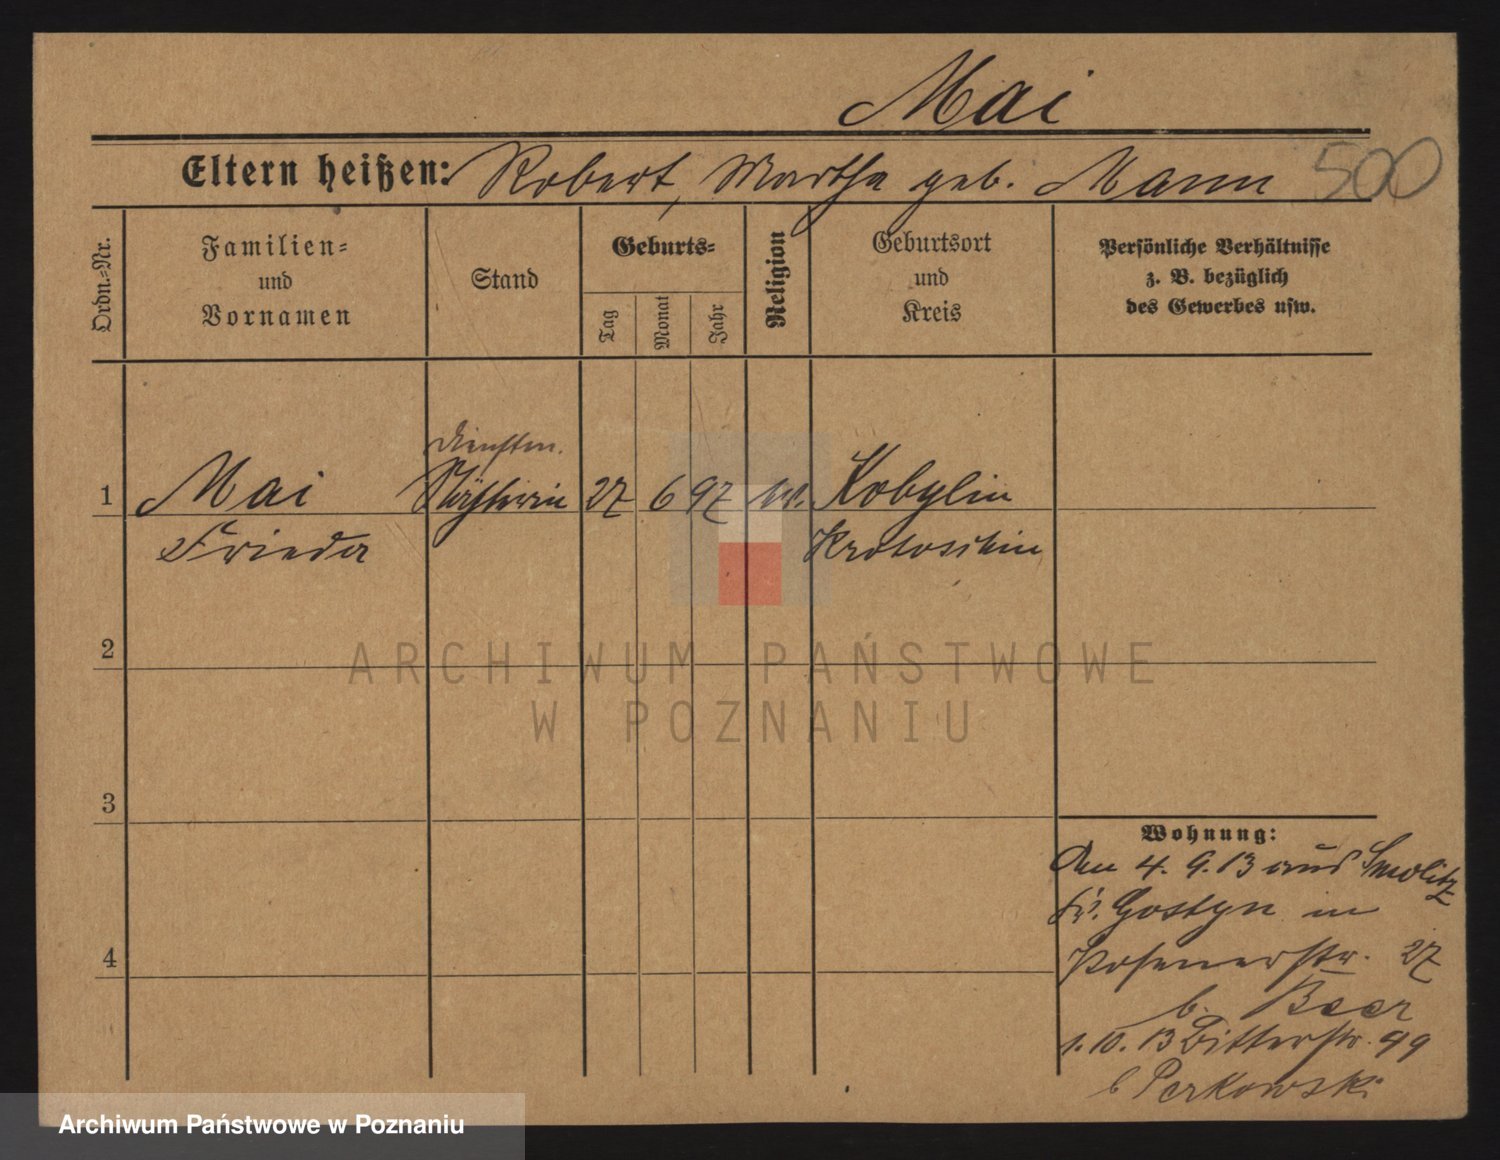 Mai
Eltern heißen: Robert, Martha geb. Mann 500
Ordn.-Nr.
Familien-
und
Vornamen
Stand
Geburts-
Tag
Monat
Jahr
Religion
Geburtsort
und
Kreis
Persönliche Verhältnisse
z. B. bezüglich
des Gewerbes usw.
1 Mai 27 6 97 Kobylin
Frieda Krotoschin
2
3
4
Wohnung:
Den 4. 9. 13 aus Smolitz
Kr. Gostyn in
Posenerstr. 27
b. Beer
1. 10. 13 Ritterstr.
b Perkowski
ARCHIWUM PAŃSTWOWE
W POZNANIU
Archiwum Państwowe w Poznaniu